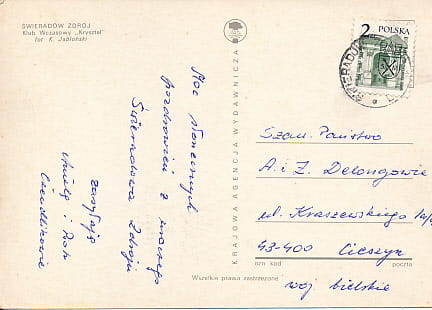 ŚWIERADÓW ZDRÓJ
Klub Wczasowy „Kryształ”
fot K. Jabłoński
Moc słonecznych
pozdrowień z
Świeradowa Zdroju
zasyłają
i
KRAJOWA AGENCJA WYDAWNICZA
2 zł POLSKA
Szan. Państwo
A. i Z. Delongowie
ul. Kraszewskiego
43-400 Cieszyn
ozn kod poczta
woj bielskie
Wszelkie prawa zastrzeżone